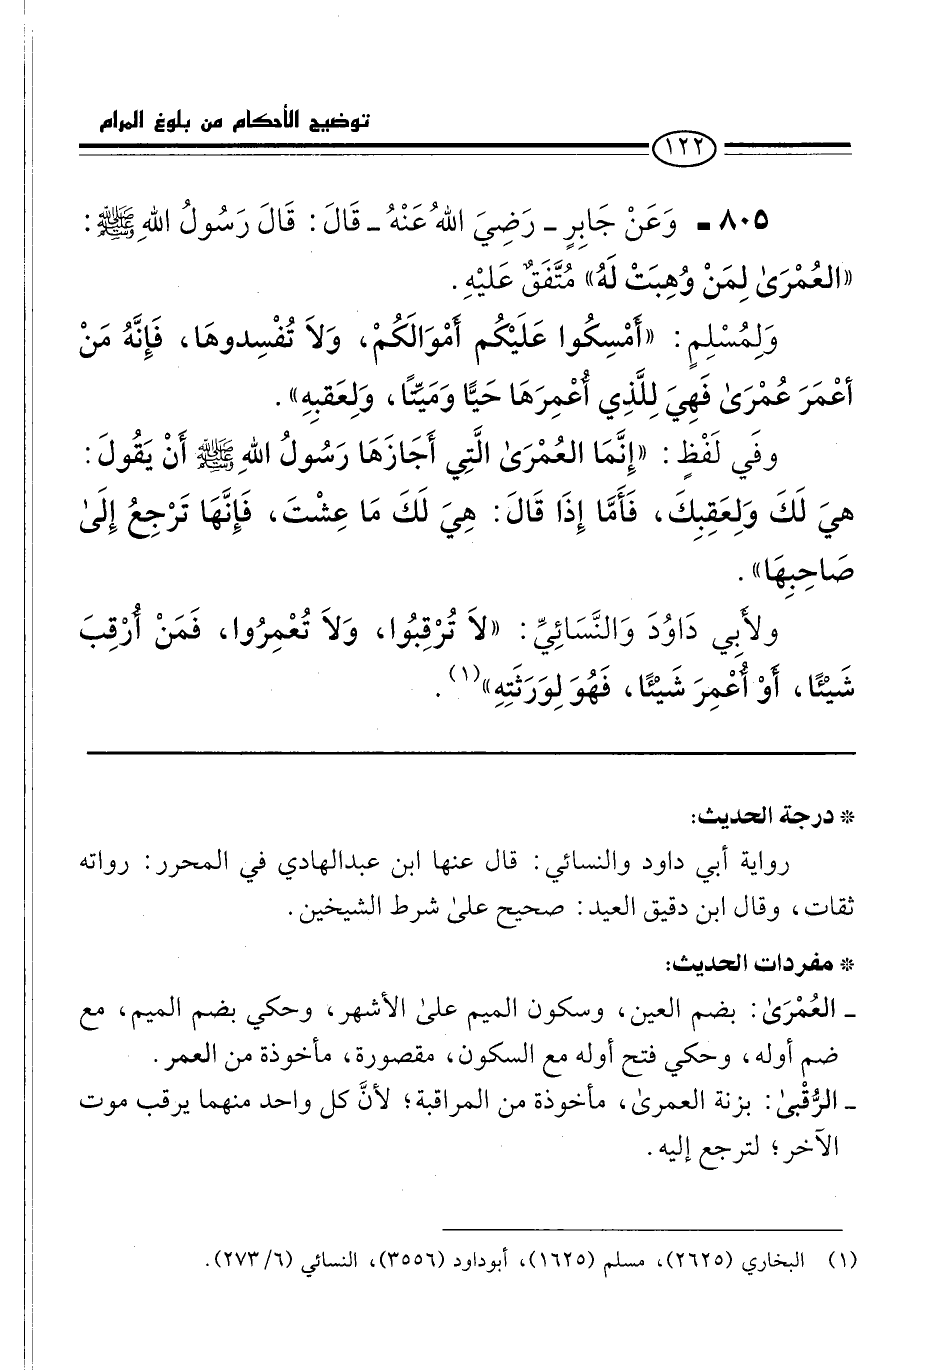 توضيح الأحكام من بلوغ المرام
١٢٢
٨٠٥ - وَعَنْ جَابِرٍ - رَضِيَ اللهُ عَنْهُ - قَالَ: قَالَ رَسُولُ اللهِ ﷺ:
«العُمْرَىٰ لِمَنْ وُهِبَتْ لَهُ» مُتَّفَقٌ عَلَيْهِ.
وَلِمُسْلِمٍ: «أَمْسِكُوا عَلَيْكُم أَمْوَالَكُمْ، وَلاَ تُفْسِدوهَا، فَإِنَّهُ مَنْ
أَعْمَرَ عُمْرَىٰ فَهِيَ لِلَّذِي أُعْمِرَهَا حَيًّا وَمَيِّتًا، وَلِعَقِبِهِ».
وفَي لَفْظٍ: «إِنَّمَا العُمْرَىٰ الَّتِي أَجَازَهَا رَسُولُ اللهِ ﷺ أَنْ يَقُولَ:
هِيَ لَكَ وَلِعَقِبِكَ، فَأَمَّا إِذَا قَالَ: هِيَ لَكَ مَا عِشْتَ، فَإِنَّهَا تَرْجِعُ إِلَىٰ
صَاحِبِهَا».
ولأَبِي دَاوُدَ وَالنَّسَائِيِّ: «لاَ تُرْقِبُوا، وَلاَ تُعْمِرُوا، فَمَنْ أُرْقِبَ
شَيْئًا، أَوْ أُعْمِرَ شَيْئًا، فَهُوَ لِوَرَثَتِهِ»(١).
* درجة الحديث:
رواية أبي داود والنسائي: قال عنها ابن عبدالهادي في المحرر: رواته
ثقات، وقال ابن دقيق العيد: صحيح علىٰ شرط الشيخين.
* مفردات الحديث:
- العُمْرَىٰ: بضم العين، وسكون الميم علىٰ الأشهر، وحكي بضم الميم، مع
ضم أوله، وحكي فتح أوله مع السكون، مقصورة، مأخوذة من العمر.
- الرُّقْبىٰ: بزنة العمرىٰ، مأخوذة من المراقبة؛ لأنَّ كل واحد منهما يرقب موت
الآخر؛ لترجع إليه.
(١) البخاري (٢٦٢٥)، مسلم (١٦٢٥)، أبوداود (٣٥٥٦)، النسائي (٢٧٣/٦).